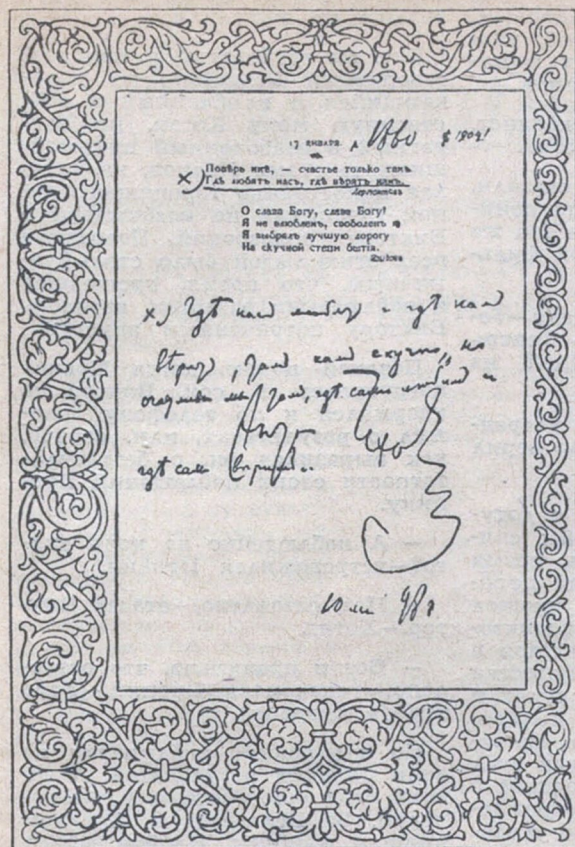 17 ЯНВАРЯ.
×) Повѣрь мнѣ, — счастье только тамъ,
Гдѣ любятъ насъ, гдѣ вѣрятъ намъ.
Лермонтовъ
О слава Богу, слава Богу!
Я не влюбленъ, свободенъ я
Я выбралъ лучшую дорогу
На скучной степи бытія.
Языковъ
×) Гдѣ насъ любятъ и гдѣ намъ
вѣрятъ, тамъ намъ скучно; но
счастливы мы тамъ, гдѣ сами любимъ и
гдѣ сами вѣримъ.
Антон Чехов
98 г